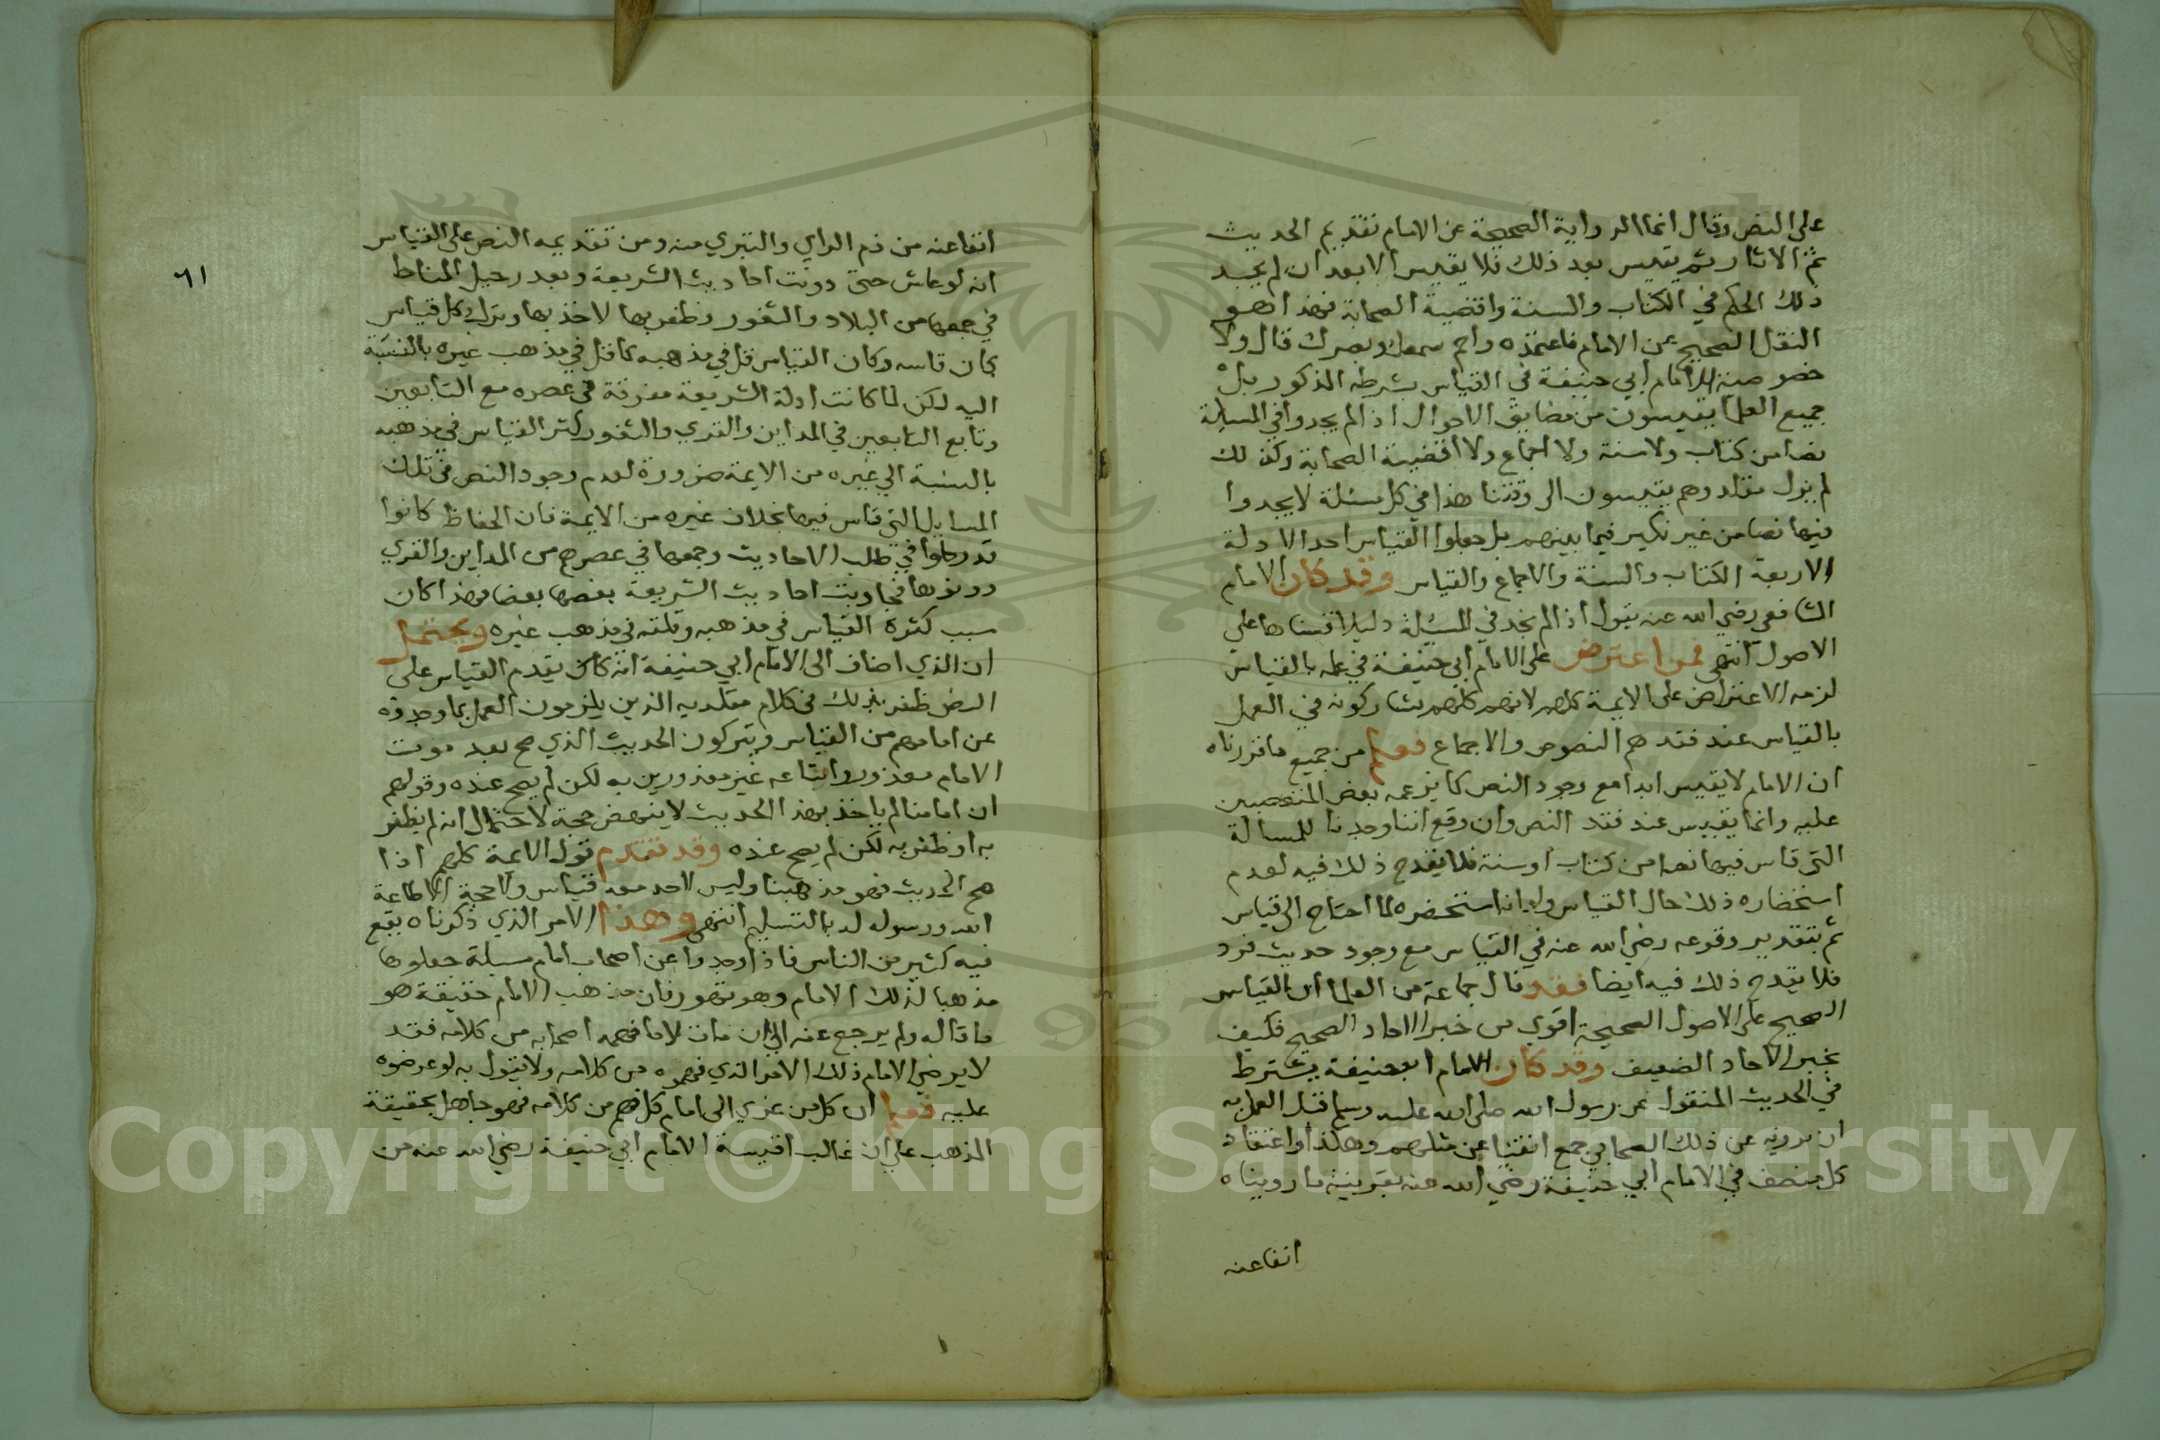 على النص وقال انما الرواية الصحيحة عن الامام تقديم الحديث
ثم الاثار ثم يقيس بعد ذلك فلا يقيس الا بعد ان لم يجد
ذلك الحكم في الكتاب والسنة واقضية الصحابة فهذا هو
النقل الصحيح عن الامام فاعتمده واحم سمعك وبصرك قال ولا
خصوصية للامام ابي حنيفة في القياس بشرطه المذكور بل
جميع العلما يقيسون من مضايق الاحوال اذا لم يجدوا في المسالة
نصا من كتاب ولا سنة ولا اجماع ولا اقضية الصحابة وكذلك
لم يزل مقلدوهم يقيسون الى وقتنا هذا في كل مسئلة لا يجدوا
فيها نصا من غير نكير فيما بينهم بل جعلوا القياس احد الادلة
الاربعة الكتاب والسنة والاجماع والقياس وقد كان الامام
الشافعي رضي الله عنه يقول اذا لم نجد في المسئلة دليلا قسناها على
الاصول انتهى فمن اعترض على الامام ابي حنيفة في عمله بالقياس
لزمه الاعتراض على الايمة كلهم لانهم كلهم يشاركونه في العمل
بالقياس عند فقدهم النصوص والاجماع فعلم من جميع ما قررناه
ان الامام لا يقيس ابدا مع وجود النص كما يزعمه بعض المتعصبين
عليه وانما يقيس عند فقد النص وان وقع اننا وجدنا للمسالة
التي قاس فيها نصا من كتاب او سنة فلا يقدح ذلك فيه لعدم
استحضاره ذلك حال القياس ولو انه استحضره لما احتاج الى قياس
ثم بتقدير وقوعه رضي الله عنه في القياس مع وجود حديث فرد
فلا يقدح ذلك فيه ايضا فقد قال جماعة من العلما ان القياس
الصحيح على الاصول الصحيحة اقوي من خبر الاحاد الصحيح فكيف
بخبر الاحاد الضعيف وقد كان الامام ابو حنيفة يشترط
في الحديث المنقول عن رسول الله صلى الله عليه وسلم قبل العمل به
ان يرويه عن ذلك الصحابي جمع اتقيا عن مثلهم وهكذا واعتقاد
كل منصف في الامام ابي حنيفة رضي الله عنه بقرينة ما رويناه
انفا عنه
انفا عنه من ذم الراي والتبري منه ومن تقديمه النص على القياس
انه لو عاش حتى دونت احاديث الشريعة وبعد رحيل الحفاظ
في جمعها من البلاد والثغور وظفر بها لاخذ بها وترك كل قياس
كان قاسه وكان القياس قل في مذهبه كما قل في مذهب غيره بالنسبة
اليه لكن لما كانت ادلة الشريعة مفرقة في عصره مع التابعين
وتابع التابعين في المداين والقري والثغور كثر القياس في مذهبه
بالنسبة الي غيره من الايمة ضرورة لعدم وجود النص في تلك
المسايل التي قاس فيها بخلاف غيره من الايمة فان الحفاظ كانوا
قد رحلوا في طلب الاحاديث وجمعها في عصرهم من المداين والقري
ودونوها فجاوبت احاديث الشريعة بعضها بعضا فهذا كان
سبب كثرة القياس في مذهبه وقلته في مذهب غيره ويحتمل
ان الذي اضاف الى الامام ابي حنيفة انه كان يقدم القياس على
النص ظفر بذلك في كلام مقلديه الذين يلزمون العمل بما وجدوه
عن امامهم من القياس ويتركون الحديث الذي صح بعد موت
الامام معذور واتباعه غير معذورين به لكن لم يصح عنده وقولهم
ان امامنا لم ياخذ بهذا الحديث لا ينهض حجة لاحتمال انه لم يظفر
به او ظفر به لكن لم يصح عنده وقد تقدم قول الايمة كلهم اذا
صح الحديث فهو مذهبنا وليس لاحد معه قياس ولا حجة الا طاعة
الله ورسوله له بالتسليم انتهى وهذا الامر الذي ذكرناه يقع
فيه كثير من الناس فاذا وجدوا عن اصحاب امام مسيلة جعلوها
مذهبا لذلك الامام وهو تهور فان مذهب الامام حقيقة هو
ما قاله ولم يرجع عنه الى ان مات لا ما فهمه اصحابه من كلامه فقد
لا يرضي الامام ذلك الامر الذي فهموه من كلامه ولا يقول به لو عرضوه
عليه فعلم ان كل من عزي الى امام كل ما فهم من كلامه فهو جاهل بحقيقة
المذهب على ان غالب اقيسة الامام ابي حنيفة رضي الله عنه من
٦١
Copyright © King Saud University